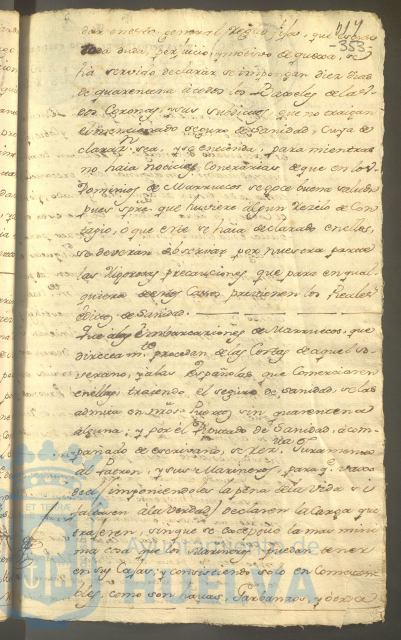 414
-353-
dar en esta general Regla
toda duda, perjuicio, y motivo de quexa, se
ha servido declarar se impongan diez dias
de quarentena à todos los Baxeles de las
dos Coronas, y sus subditos, que no traigan
el mencionado seguro de Sanidad, cuya de
claraz.n sea, y se entienda, para mientras
no haia noticias contrarias de que en los
Dominios de Marruecos se goce buena salud
pues spre. que huviere algun rezelo de Con
tagio, o que este se haia declarado en ellos,
se deveran observar por nuestra parte
las rigorosas precauciones, que para en qual
quiera de estos Casos previenen los Reales
edictos de Sanidad.
Que à las Embarcaciones de Marruecos, que
directam.te procedan de las Costas de aquel so
verano, y à las Españolas que Comerciaren
en ellas, trayendo el seguro de Sanidad, se las
admita en nros. Puertos sin quarentena
alguna; y por el Diputado de Sanidad, acom
pañado de escrivano, se Juramento
al Patron, y sus Marineros, para q.e
imponiendoles la pena de la Vida si
faltasen à la Verdad) declaren la Carga que
traxeren, sin que se exceptue la mas mini
ma cosa que los Marineros puedan tener
en sus Cajas; y consistiendo solo en Comesti
bles, como son Javas, Garbanzos, y demas
Ayuntamiento de
HUELVA